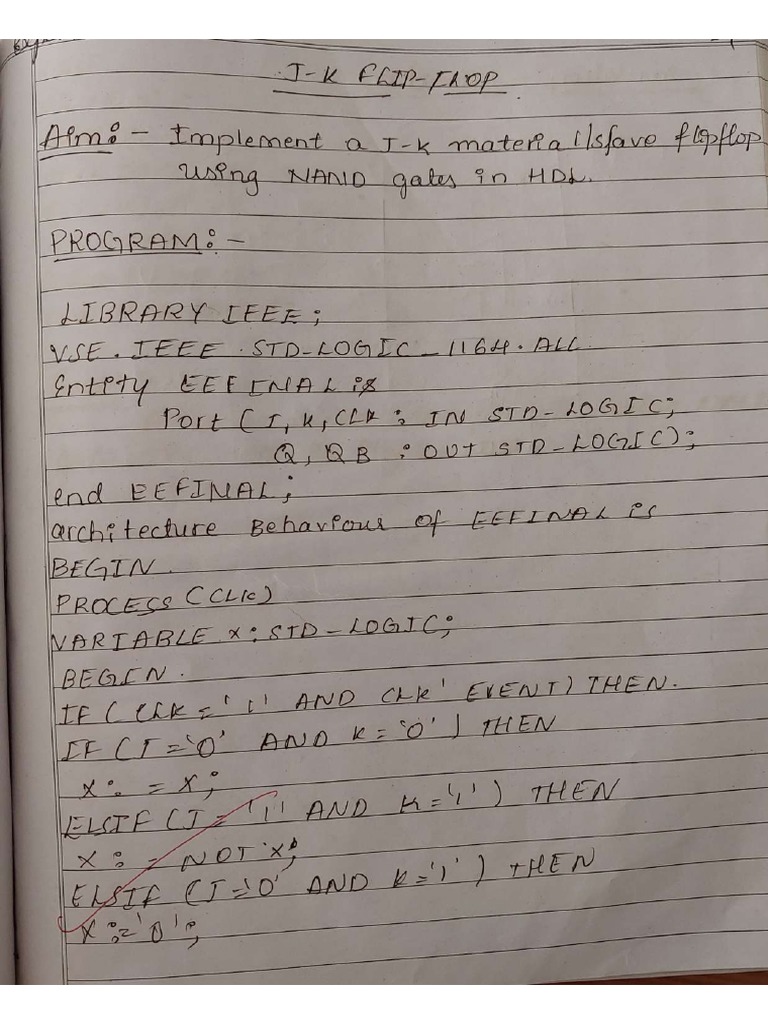 J-K FLIP-FLOP
Aim:- Implement a J-K material/slave flipflop
using NAND gates in HDL.
PROGRAM:-
LIBRARY IEEE;
USE.IEEE.STD-LOGIC_1164.ALL
Entity EEFINAL is
Port (J, K, CLK : IN STD-LOGIC;
Q, QB : OUT STD-LOGIC);
end EEFINAL;
architecture Behaviour of EEFINAL is
BEGIN.
PROCESS (CLK)
VARIABLE x: STD-LOGIC;
BEGIN.
IF (CLK = '1' AND CLK' EVENT) THEN.
IF (J = '0' AND K = '0') THEN
x: = x;
ELSIF (J = '1' AND K = '1') THEN
x: = NOT x;
ELSIF (J = '0' AND K = '1') tHEN
x:= '0';